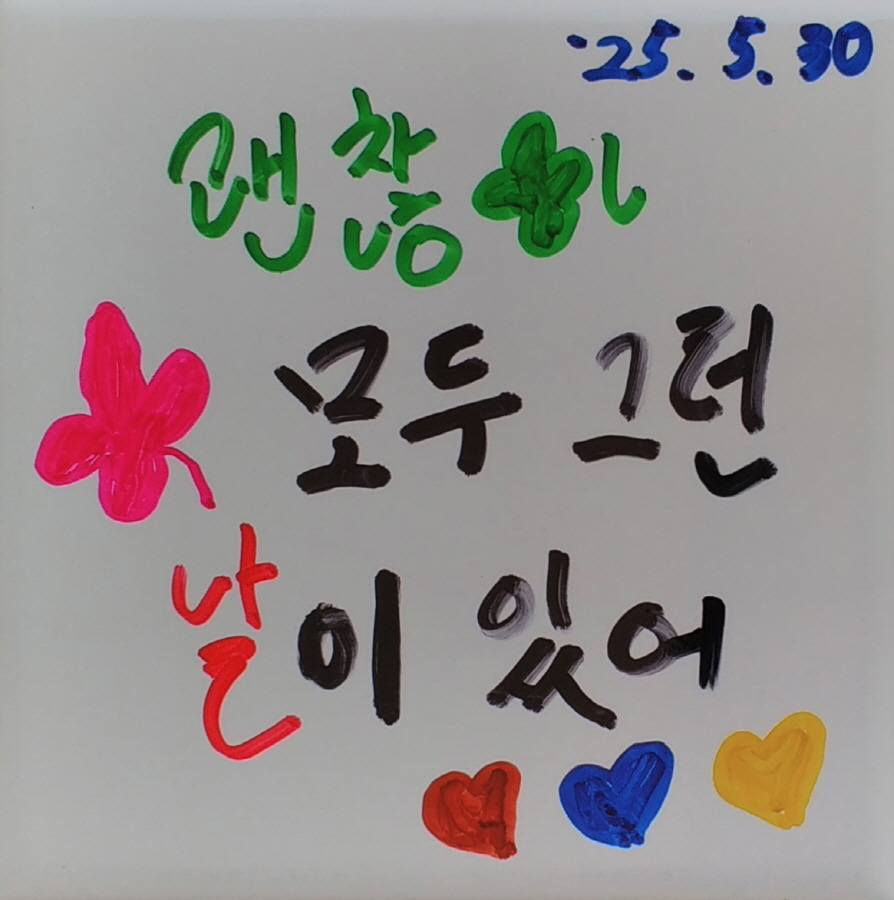 '25. 5. 30
괜찮아
모두 그런
날이 있어